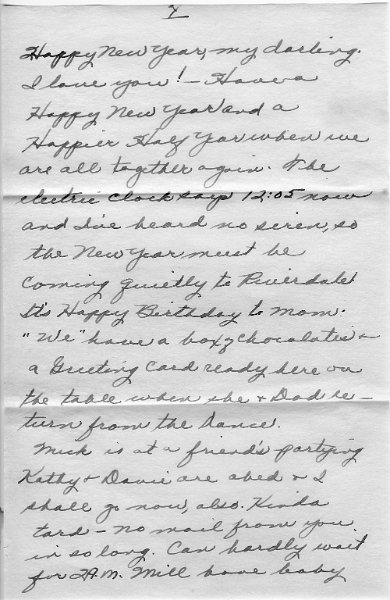 7
Happy New Year, my darling.
I love you! - Have a
Happy New Year and a
Happier Half Year when we
are all together again. The
electric clock says 12:05 now
and I've heard no siren, so
the New Year must be
coming quietly to Riverdale!
It's Happy Birthday to Mom.
"We" have a box of chocolates &
a Greeting Card ready here on
the table when she & Dad re-
turn from the dance.
Mick is at a friend's partying
Kathy & Davie are abed & I
shall go now, also. Kinda
tard - no mail from you
in so long. Can hardly wait
for A.M. Mill have baby